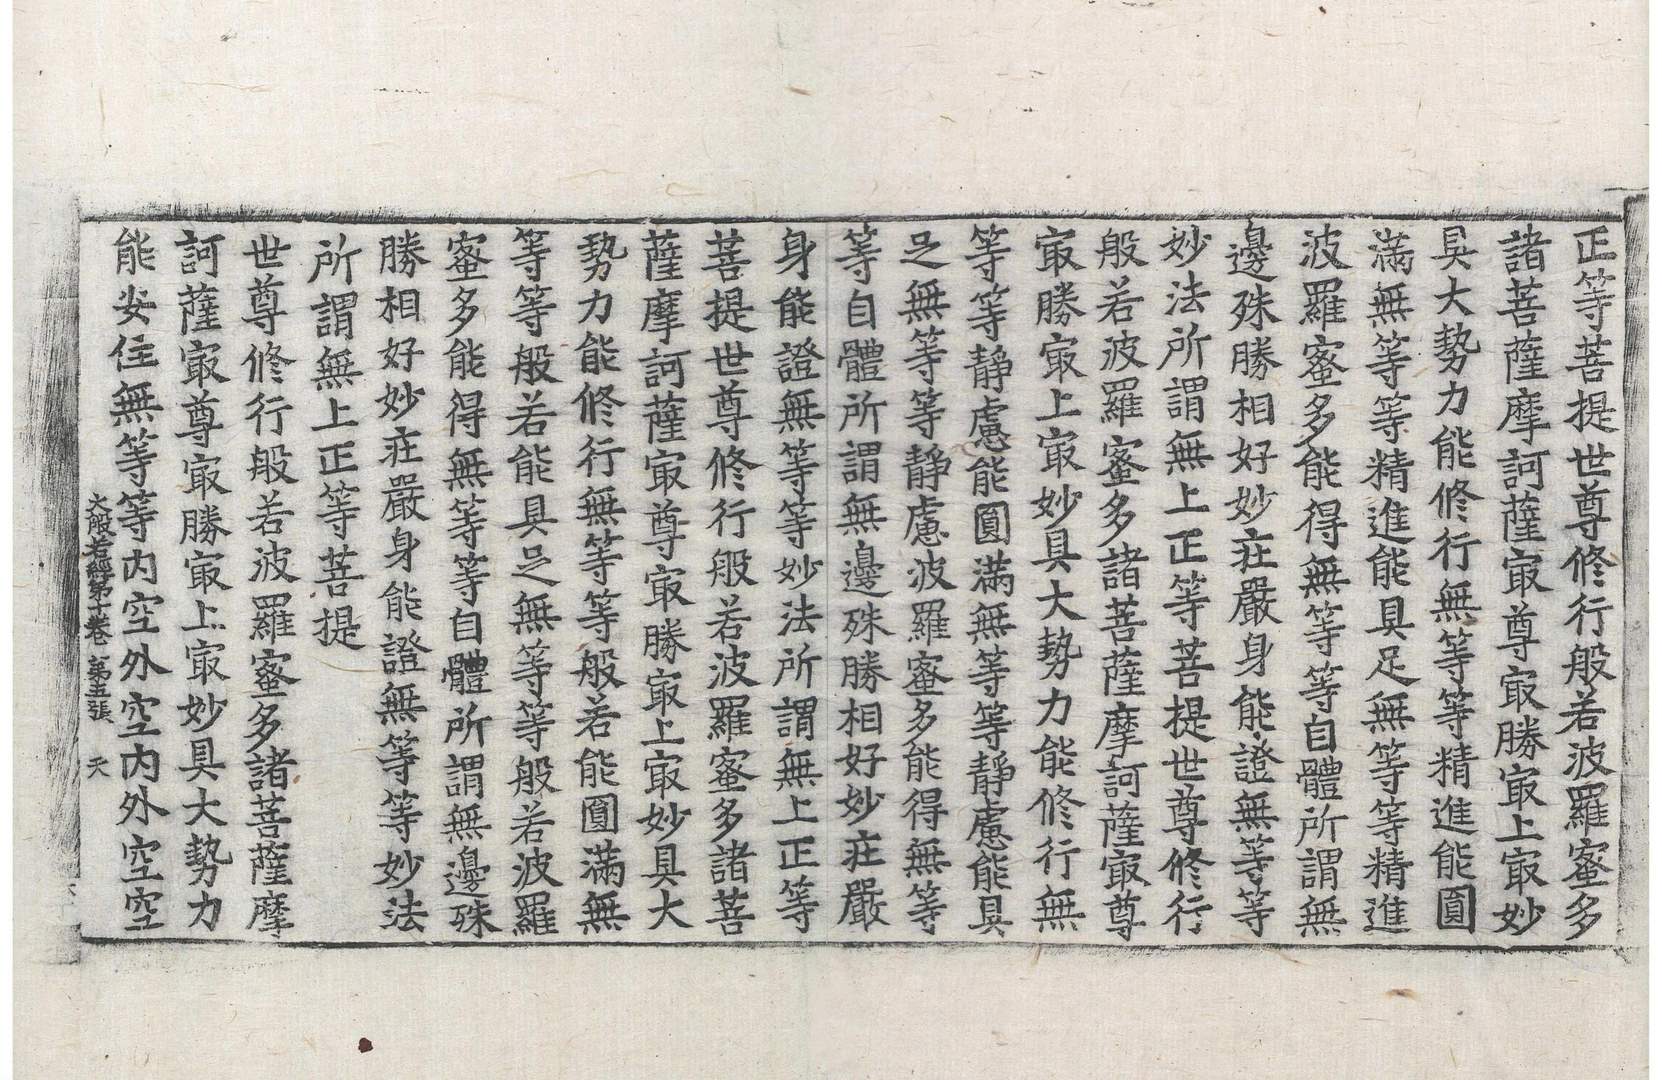 正等菩提世尊修行般若波羅蜜多
諸菩薩摩訶薩㝡尊㝡勝㝡上㝡妙
具大勢力能修行無等等精進能圓
滿無等等精進能具足無等等精進
波羅蜜多能得無等等自體所謂無
邊殊勝相好妙莊嚴身能證無等等
妙法所謂無上正等菩提世尊修行
般若波羅蜜多諸菩薩摩訶薩㝡尊
㝡勝㝡上㝡妙具大勢力能修行無
等等靜慮能圓滿無等等靜慮能具
足無等等靜慮波羅蜜多能得無等
等自體所謂無邊殊勝相好妙莊嚴
身能證無等等妙法所謂無上正等
菩提世尊修行般若波羅蜜多諸菩
薩摩訶薩㝡尊㝡勝㝡上㝡妙具大
勢力能修行無等等般若能圓滿無
等等般若能具足無等等般若波羅
蜜多能得無等等自體所謂無邊殊
勝相好妙莊嚴身能證無等等妙法
所謂無上正等菩提
世尊修行般若波羅蜜多諸菩薩摩
訶薩㝡尊㝡勝㝡上㝡妙具大勢力
能安住無等等内空外空内外空空
大般若經第十卷 第五張 天